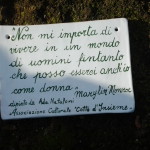 Non mi importa di
vivere in un mondo
di uomini fintanto
che posso esserci anch'io
come donna" Marylin Monroe
dipinto da Ada Natalini
Associazione Culturale "Cotto d'Insieme"